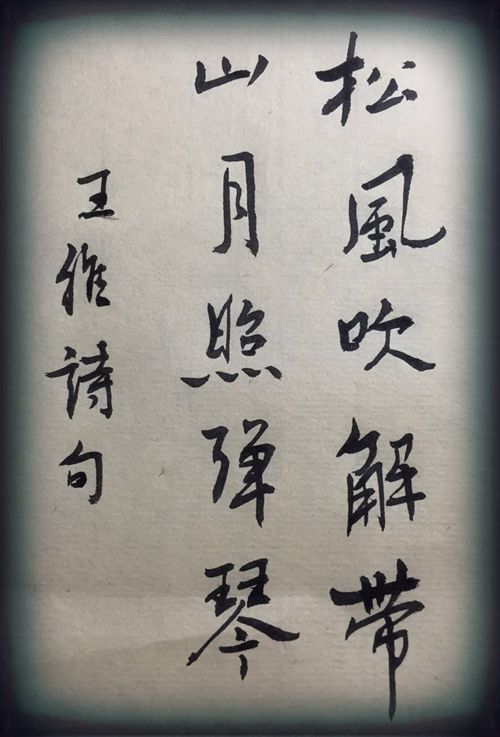 松風吹解带
山月照弹琴
王維詩句